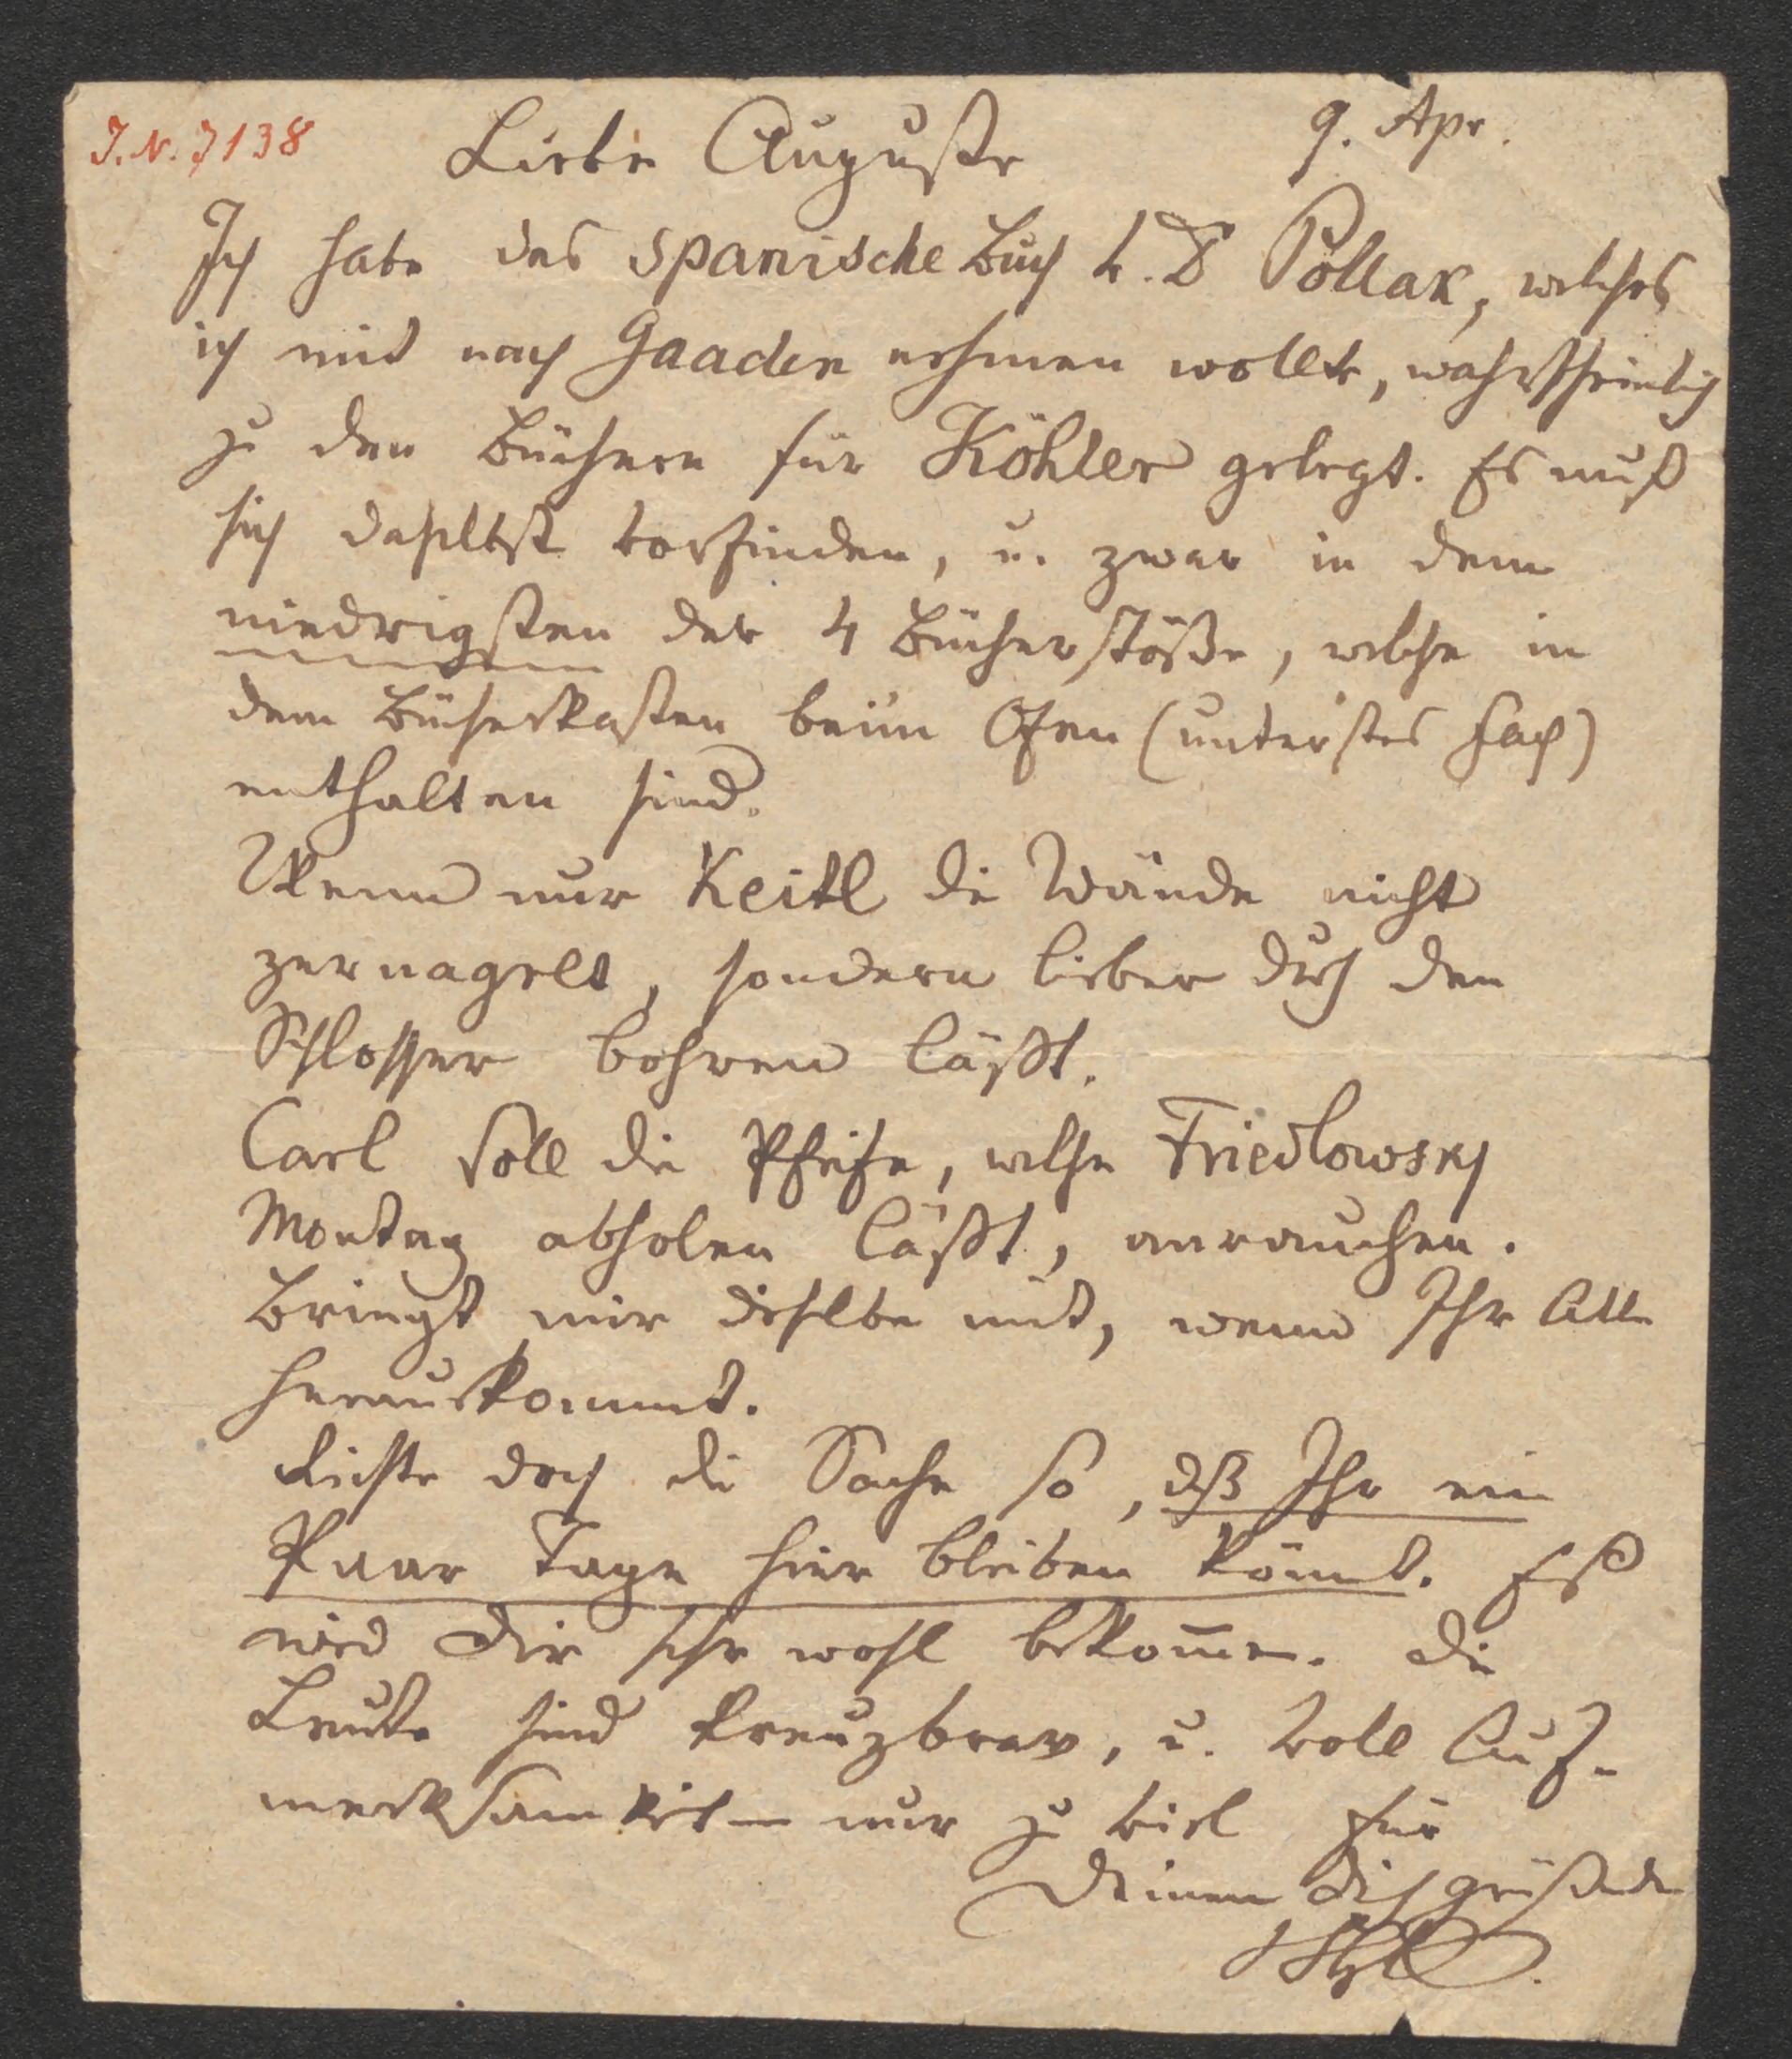 J. N. 7138
9. Apr.
Liebe Auguste
Ich habe das spanische Buch v. Dr Pollak, welches
ich mit nach Gaaden nehmen wollte, wahrscheinlich
zu den Büchern für Köhler gelegt. Es muß
sich daselbst vorfinden, u. zwar in dem
niedrigsten der 4 Bücherstöße, welche in
dem Bücherkasten beim Ofen (unterstes Fach)
enthalten sind.
Wenn nur Keitl die Wände nicht
zernagelt, sondern lieber durch den
Schlosser bohren läßt.
Carl soll die Pfeife, welche Friedlowsky
Montag abholen läßt, anrauchen.
Bringt mir dieselbe mit, wenn Ihr Alle
herauskommt.
Richte doch die Sache so, dß Ihr ein
Paar Tage hier bleiben könnt. Es
wird Dir sehr wohl bekom̅en. Die
Leute sind kreuzbrav, u. voll Auf-
merksamkeit – nur zu viel für
Deinen Dich grüßenden